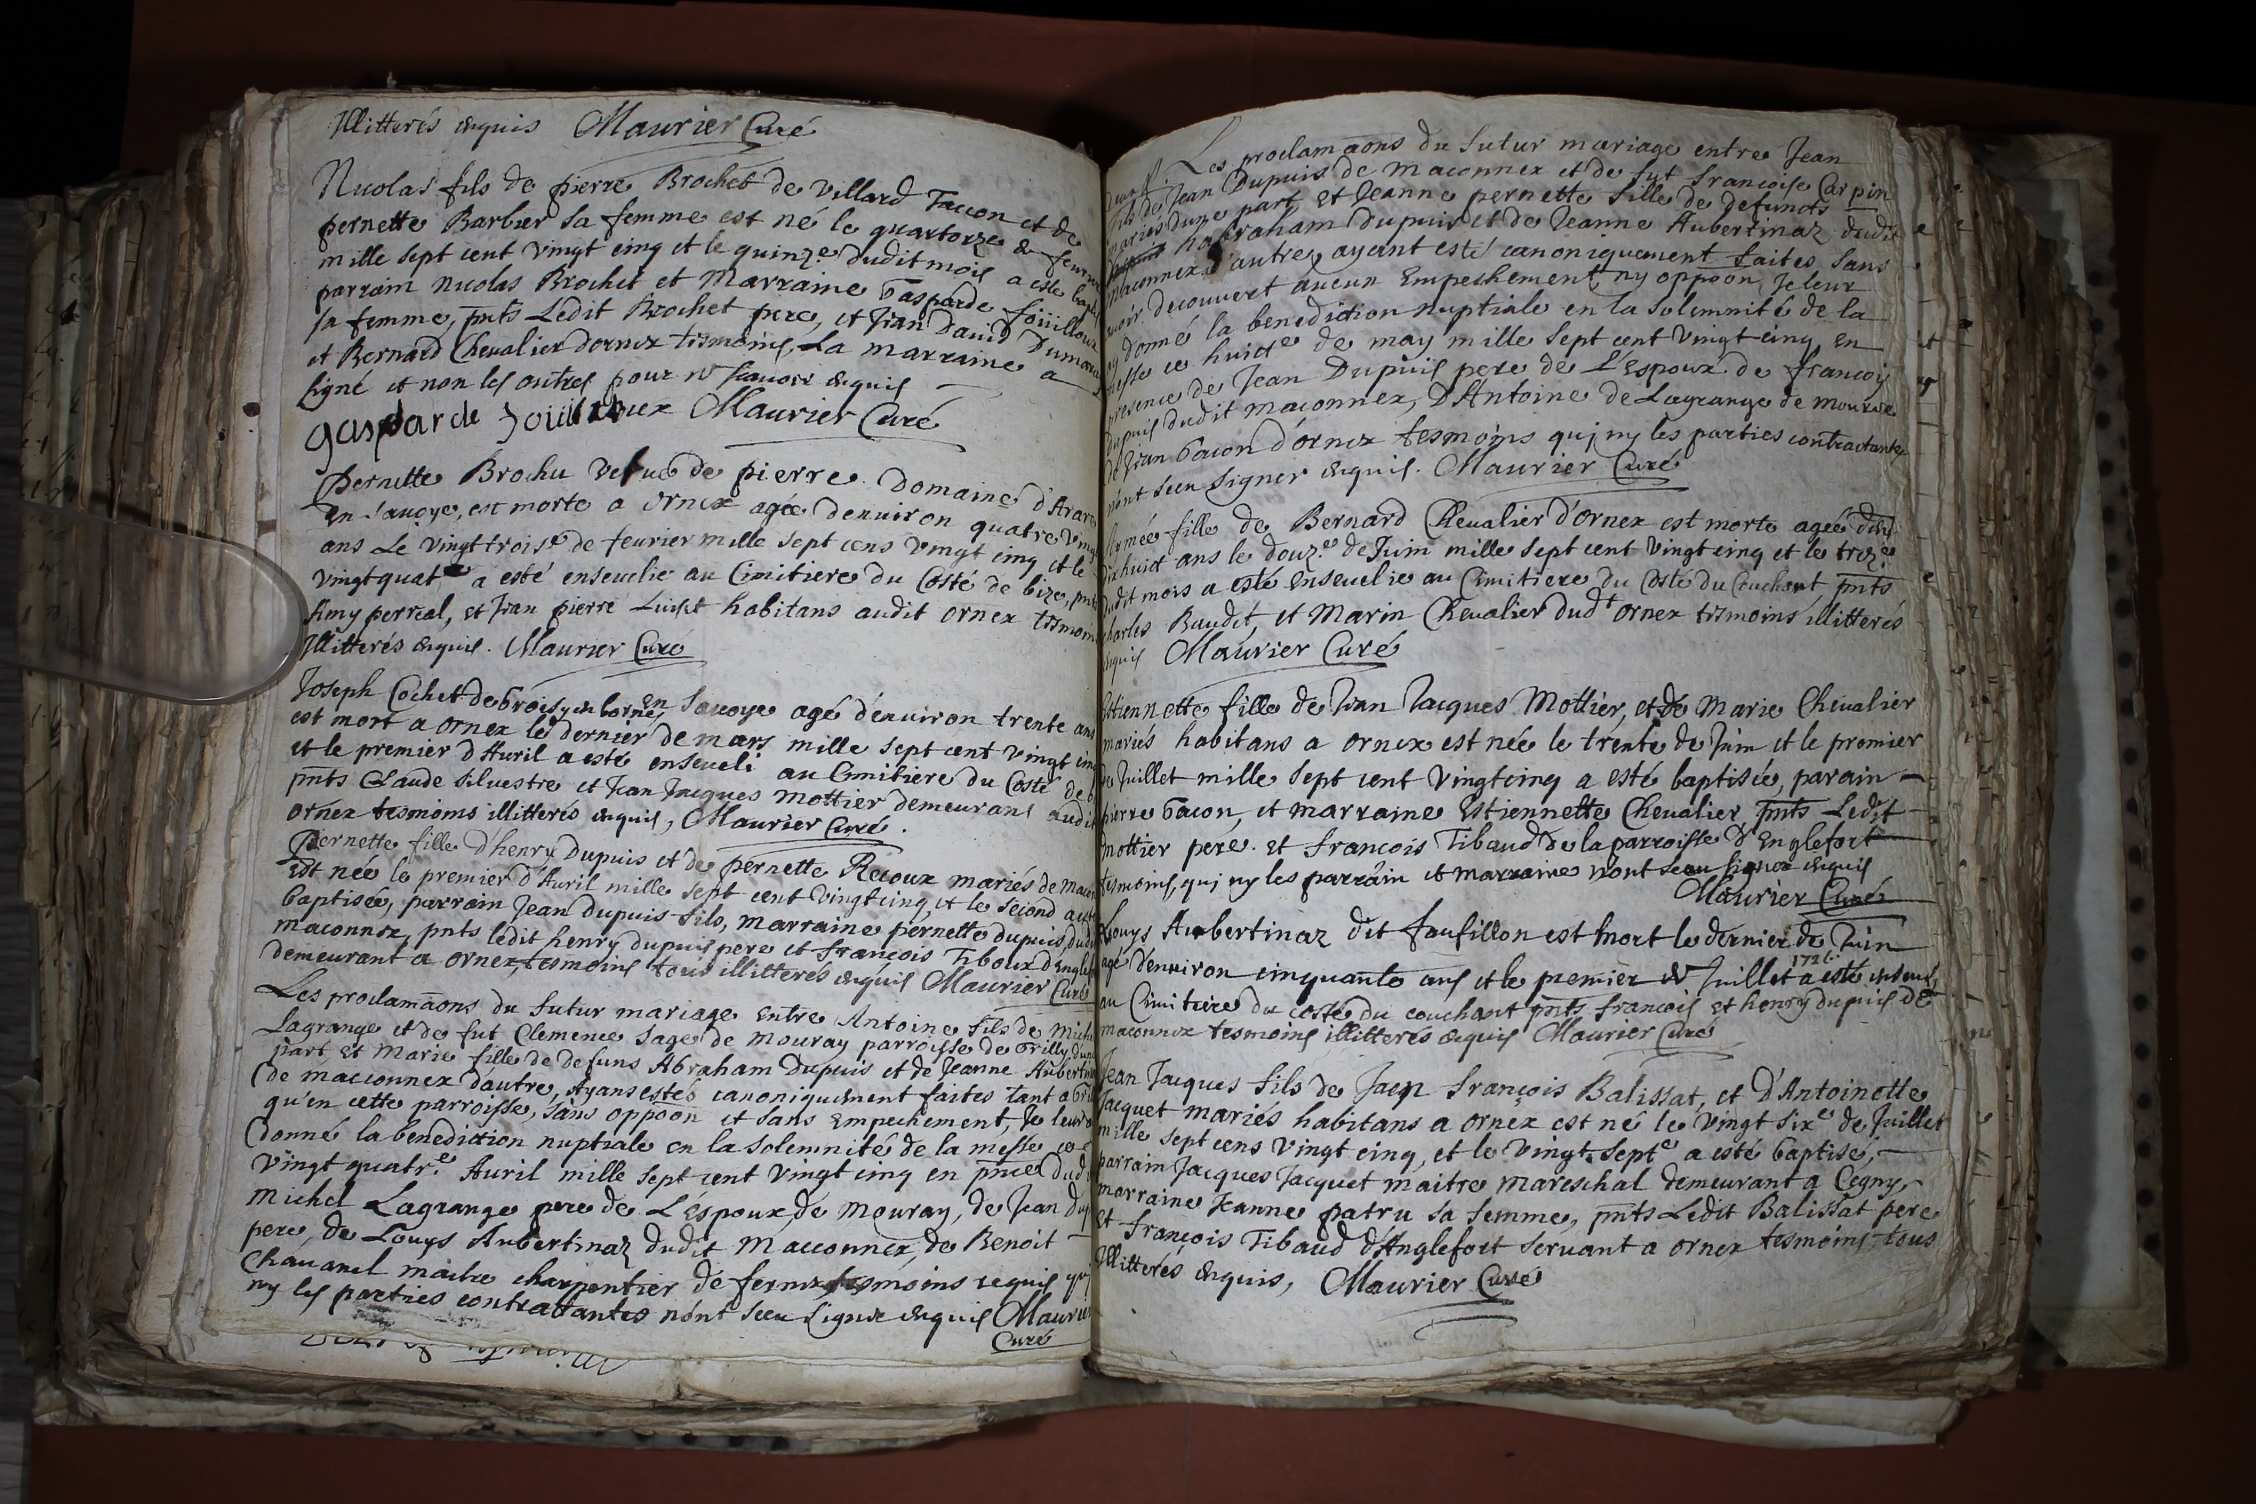 Illitterés enquis Maurier Curé
Nicolas fils de pierre Brochet de Villard Taccon et de
pernette Barbier sa femme est né le quartorze de feurier
mille sept cent vingt cinq et le quinz.e dudit mois a esté bapt
parrain Nicolas Brochet et Marraine Gasparde foüilloux
sa femme, pnts Ledit Brochet pere, et Jean David Dumon
et Bernard Chevalier d'ornex tesmoins, La marraine a
signé et non les autres pour ne scauoir enquis
gasparde fouilloux Maurier Curé
Pernette Brochu vefue de pierre Domaine d'Arar
En Sauoye, est morte a ornex agée denuiron quatre Ving
ans Le Vingt trois.e de feurier mille sept cens Vingt cinq et le
Vingtquat.e a esté enseuelie au Cimitiere du Costé de bize, pnts
Amy perreal, et Jean pierre Luiset habitans audit ornex tesmoin
Illitterés enquis. Maurier Curé
Joseph Cochet de broisy en borne en Sauoye agé d'enuiron trente ans
est mort a ornex le dernier de mars mille sept cent vingt cin
et le premier d'Auril a esté enseueli au Cimitiere du Costé de
pnts Claude Siluestre et Jean Jacques Mottier demeurans audit
ornex tesmoins illitterés enquis, Maurier Curé.
Pernette fille d'henry Dupuis et de pernette Recoux mariés de macon
Est née le premier d'Auril mille sept cent vingtcinq, et le second a esté
baptisée, parrain Jean Dupuis fils, marraine pernette dupuis dud
maconnex, pnts ledit henry dupuis pere et françois Tiboux d'Englef
demeurant a ornex, tesmoins tous illitterés enquis Maurier Curé
Les proclamaons du futur mariage entre Antoine fils de Mich
Lagrange et de fut Clemence Sage de Mouray parroisse de Grilly, d'une
part et Marie fille de defuns Abraham Dupuis et de Jeanne Aubertin
de macconnex d'autre, Ayans estés canoniquement faites tant a Gri
qu'en cette parroisse, sans oppoon et sans empechement, Je leur
Donné la benediction nuptiale en la solemnité de la messe ce
Vingt quatr.e Auril mille sept cent vingt cinq en pnce dud
Michel Lagrange pere de L'Espoux, de Mouray, de Jean Dup
pere, de Louys Aubertinaz dudit Macconnex, de Benoit
Chauanel maitre charpentier de fernex tesmoins requis quj
ny les parties contrattantes nont sceu signer enquis Maurier
Curé
Les proclamaons du futur mariage entre Jean
fils de Jean Dupuis de maconnex et de fut françoise Carpin
mariés d'une part, et Jeanne pernette fille de defuncts
Abraham Dupuis et de Jeanne Aubertinaz dudit
Maconnex d'autre, ayant esté canoniquement faites, sans
auoir decouvert aucun Empechement, ny oppoon, Je leur
ay donné la benediction nuptiale en la solemnité de la
Messe ce huict.e de may mille sept cent Vingt cinq, en
presence de Jean Dupuis pere de L'Espoux de françois
Dupuis dudit maconnex, D'Antoine de Lagrange de mourex
de Jean Gacon d'ornex tesmoins quj ny les parties contractantes
n'ont sceu signer enquis. Maurier Curé
Aimée fille de Bernard Chevalier d'ornex est morte ageé d'en
dix huict ans le douz.e de Juin mille sept cent vingt cinq et le trez.e
dudit mois a esté enseuelie au Cimitiere du Costé du Couchant pnts
charles Baudit, et Marin Chevalier dudt ornex tesmoins illitterés
enquis Maurier Curé
Estiennette fille de Jean Jacques Mottier, et de Marie Chevalier
mariés habitans a ornex est née le trente de Juin et le premier
de Juillet mille sept cent Vingtcinq a esté baptisée, parain
pierre Gacon, et marraine Estiennette Chevalier, pnts Ledit
mottier pere. et francois Tibaud de la parroisse d'Englefort
tesmoins, quj ny les parrain et marraine n'ont sceu signer enquis
Maurier Curé
Louys Aubertinaz dit faufillon est mort le dernier de Juin
1725
agé d'enuiron cinquante ans et le premier de Juillet a esté enseueli
au Cimitiere du costé du couchant pnts françois et henry dupuis de
maconnex tesmoins illitterés enquis Maurier Curé
Jean Jacques fils de Jacq françois Balissat, et D'Antoinette
Jacquet mariés habitans a ornex est né le vingt six.e de Juillet
mille sept cens vingt cinq, et le vingt sept.e a esté baptisé,
parrain Jacques Jacquet maitre mareschal demeurant a Cegny,
marraine Jeanne patru sa femme, pnts Ledit Balissat pere
Et françois Tibaud d'Anglefort seruant a ornex tesmoins tous
Illitterés enquis, Maurier Curé